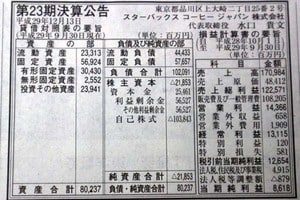 第23期決算公告
平成29年12月13日
東京都品川区上大崎二丁目25番2号
スターバックス コーヒー ジャパン 株式会社
代表取締役 水口 貴文
貸借対照表の要旨
(平成29年9月30日現在)(単位:百万円)
資産の部
流動資産 23,313
固定資産 56,923
有形固定資産 30,430
無形固定資産 2,550
投資その他の資産 23,941
資産合計 80,237
負債及び純資産の部
流動負債 44,433
固定負債 57,657
負債合計 102,091
株主資本 △21,853
資本金 25,461
利益剰余金 56,527
その他利益剰余金 56,527
自己株式 △103,843
純資産合計 △21,853
負債・純資産合計 80,237
損益計算書の要旨
(単位:百万円)
売上高 170,984
売上原価 48,412
売上総利益 122,571
販売費及び一般管理費
営業利益
営業外収益 658
営業外費用
経常利益
特別利益
特別損失 581
税引前当期純利益 12,654
法人税、住民税及び事業税 4,915
法人税等調整額 △879
当期純利益 8,618